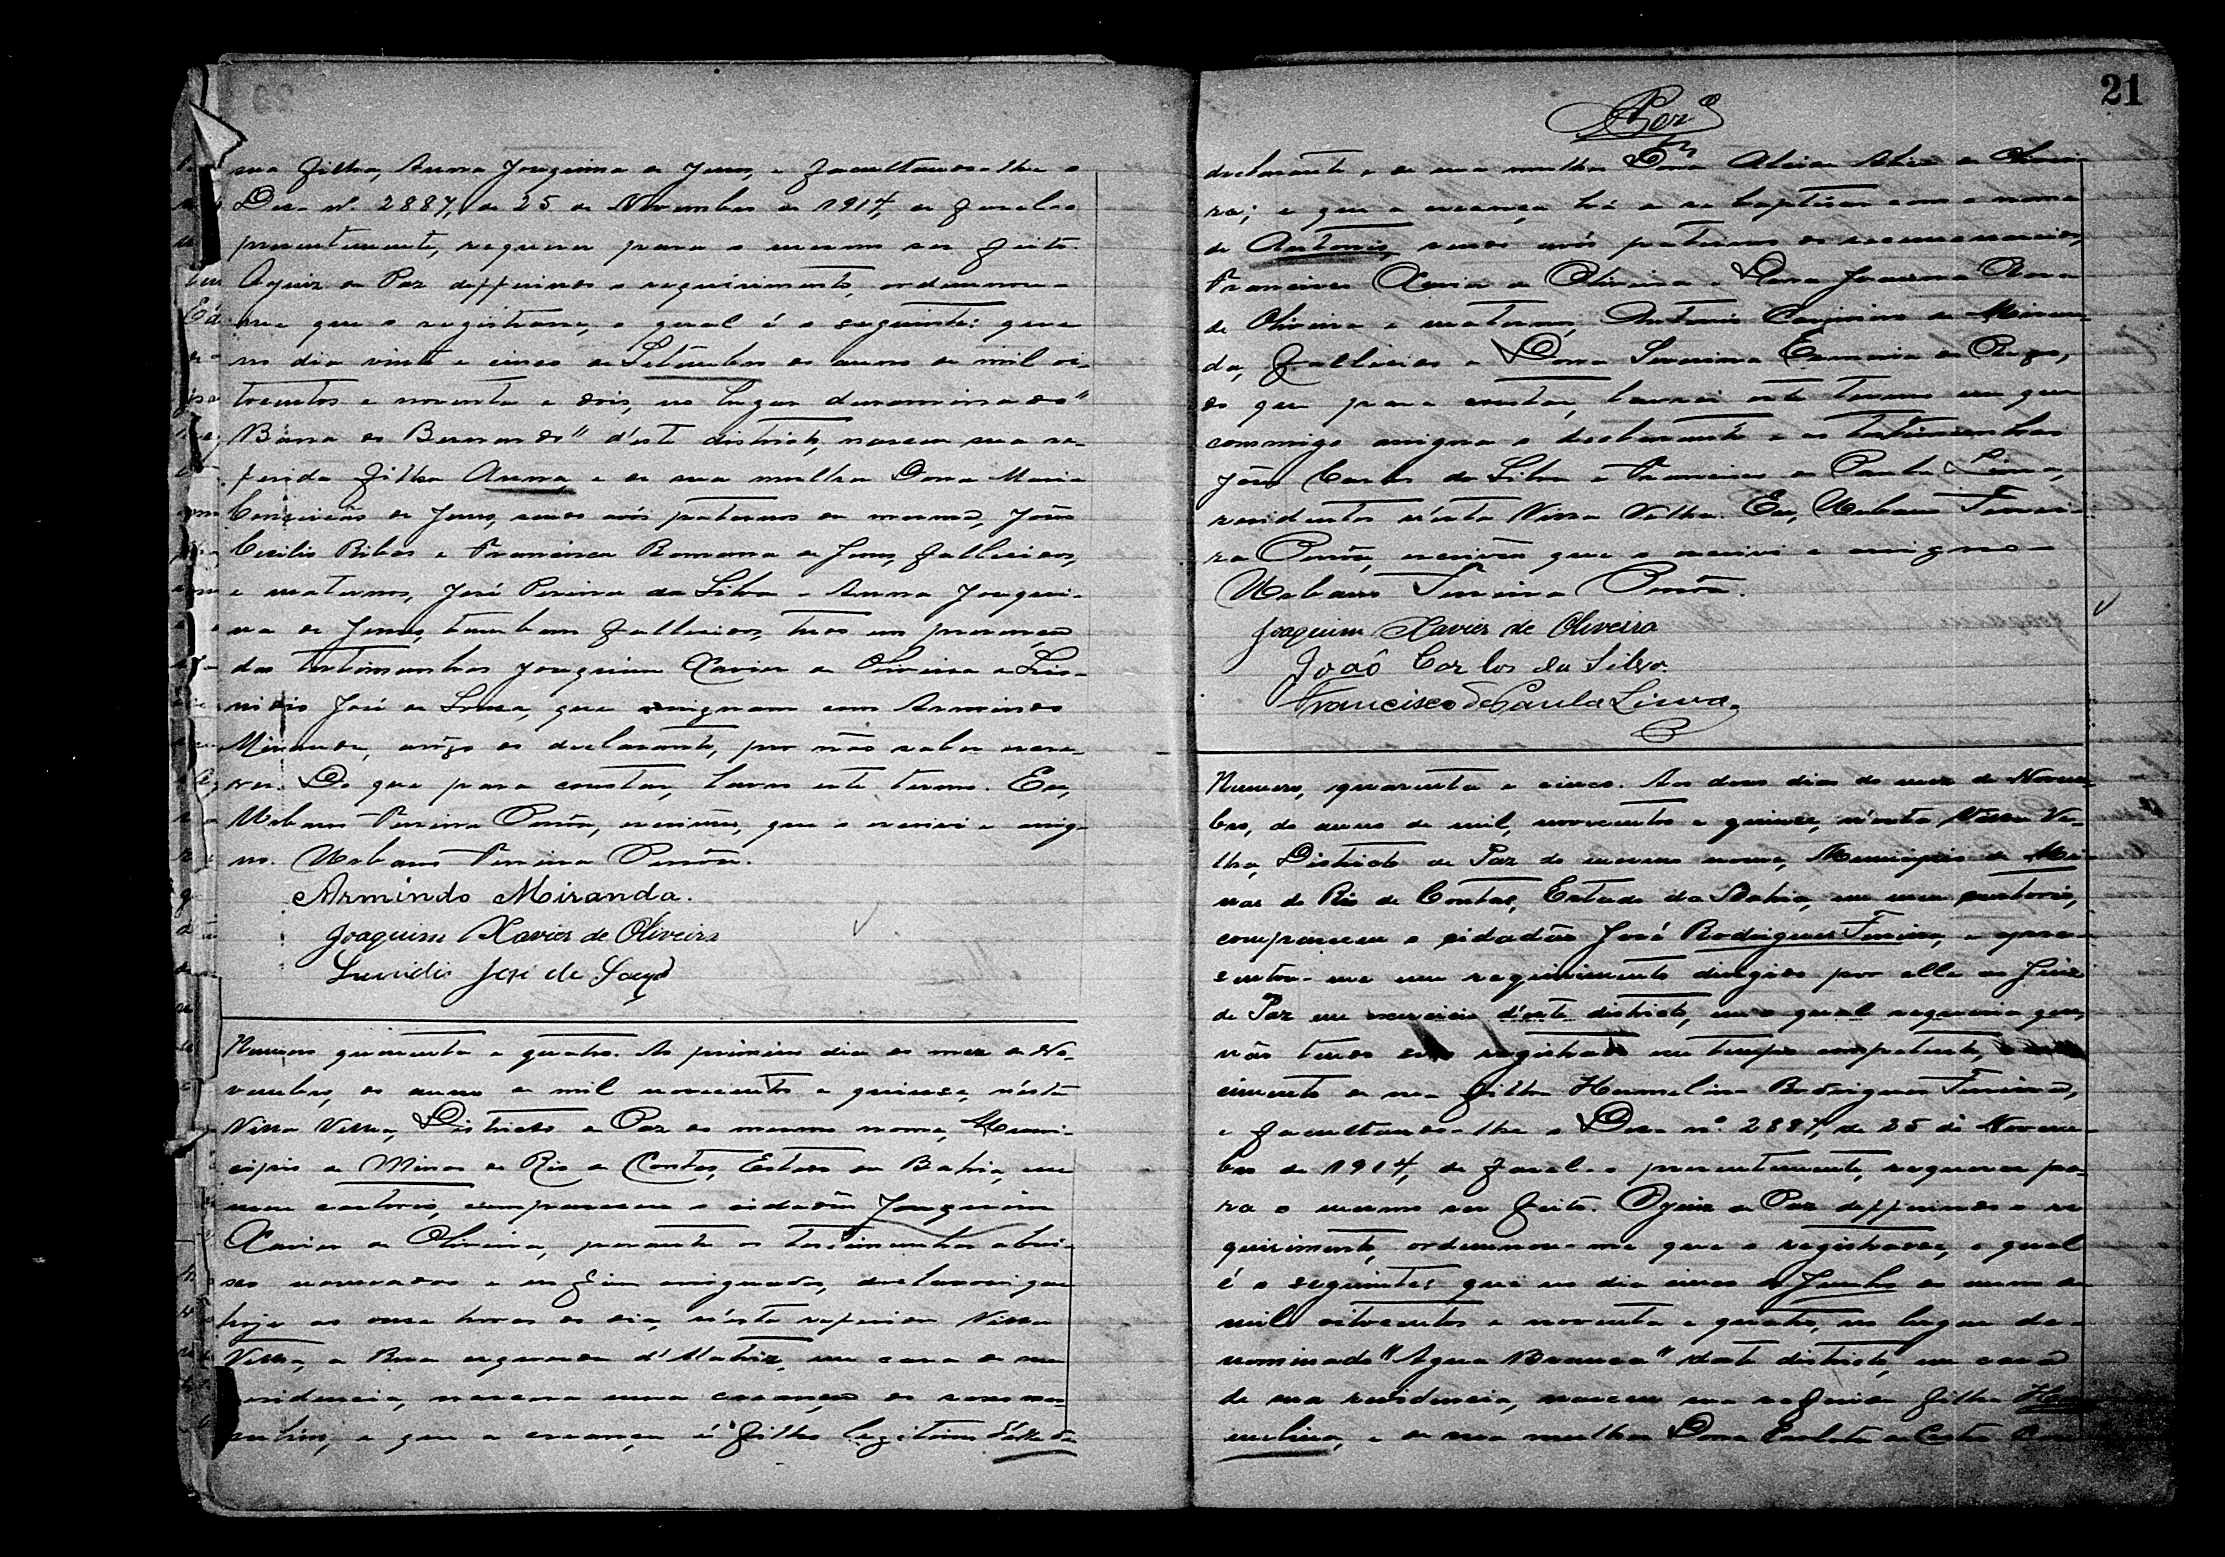 sua filha, Anna Joaquina de Jesus, e facultando-lhe o
Dec. nº. 2887, de 25 de Novembro de 1914, de fazel-o
presentemente, requerer para o mesmo ser feito.
O Juiz de Paz defferindo o requerimento, ordennou-
me que o registrasse, o qual é o seguinte: que
no dia vinte e cinco de Setembro do anno de mil oi-
tocentos e noventa e dois, no lugar denominado "
Barra do Bernardo" d'este districto, nasceu sua re-
ferida filha Anna e de sua mulher Dona Maria
Conceição de Jesus, sendo avós paternos da mesma, João
Cecilio Ribas e Francisca Romana de Jesus, fallecidos,
e maternos, José Pereira da Silva e Anna Joaqui-
na de Jesus, tambem fallecidos, tudo em presença
das testemunhas Joaquim Xavier de Oliveira e
José de Souza, que assignam com Armindo
Miranda, arôgo do declarante, por não saber escre-
ver. Do que para constar, lavro este termo. Eu,
Urbano Pereira, escrivão, que o escrevi e assig-
no. Urbano Pereira
Armindo Miranda.
Joaquim Xavier de Oliveira
José de Souza
Numero quarenta e quatro. Ao primeiro dia do mez de No-
vembro, do anno de mil novecentos e quinze, n'ésta
Villa Velha, Districto de Paz do mesmo nome, Muni-
cipio de Minas do Rio de Contas, Estado da Bahia, em
meu cartorio, compareceu o cidadão Joaquim
Xavier de Oliveira, perante as testemunhas abai-
xo nomeadas e no fim assignadas, declarou que
hoje as onze horas do dia, n'ésta referida Villa
Velha, a Rua esquerda d'Matriz, em casa de sua
residencia, nascera uma creança do sexo mas-
culino, e que a creança é filho legitimo d'elle de-
21
declarante e de sua mulher Dona de Olivei-
ra; e que a creança há de se baptisar com o nome
de Antonio, sendo avós paternos os
Francisco Xavier de Oliveira e Dona Joaquina Rosa
de Oliveira e maternos, Antonio Casimiro de Miran-
da, fallecido e Dona
do que para constar, lavrei este termo em que
commigo assigna o declarante e as testemunhas
João Carlos da Silva e Francisco de Paula Lima,
residentes n'esta Villa Velha. Eu, Urbano Perei-
ra, escrivão que o escrevi e assigno-
Urbano Pereira
Joaquim Xavier de Oliveira
João Carlos da Silva.
Francisco de Paula Lima.
Numero, quarenta e cinco. Aos dous dias do mez de Novem-
bro, do anno de mil, novecentos e quinze, n'ésta Villa Ve-
lha, Districto de Paz do mesmo nome, Municipio de Mi-
nas do Rio de Contas, Estado da Bahia, em meu cartorio,
compareceu o cidadão José Rodrigues Pereira, e apre-
sentou-me um requerimento dirigido por elle ao Juiz
de Paz em exercicio d'este districto, em o qual requeria que,
não tendo sido registrado em tempo competente, o
cimento de sua filha Hermelina Rodrigues Pereira,
e facultando-lhe o Dec. nº. 2887, de 25 de Novem-
bro de 1914, de fazel-o presentemente, requerer pa-
ra o mesmo ser feito. O Juiz de Paz defferindo o re
querimento, ordennou-me que o registrasse, o qual
é o seguinte: que no dia cinco de Junho do anno de
mil oitocentos e noventa e quatro, no lugar de-
nominado "Agua Branca" d'este districto, em casa
de sua residencia, nasceu sua referida filha Her
melina, e de sua mulher Dona de Castro